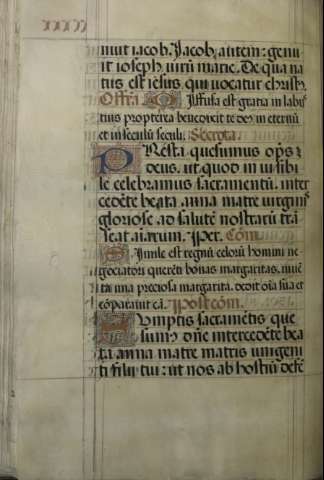 xxxxv
nuit iacob. Jacob autem: genu
it ioseph virū marie. De qua na
tus est iesus, qui vocatur christꝰ.
Offrā Diffusa est gratia in labijs
tuis propterea benedixit te deꝰ in eternū
et in seculū seculi. Secreta.
Presta quesumus oꝑs ꝫ
deus. ut quod in uisibi
le celebramus sacramentū. inter
cedēte beata anna matre uirginis
gloriose ad salutē nostrarū trā
seat aīarum. Per. Com̄.
Simile est regnū celorū homini ne-
gociatori querēti bonas margaritas. inuē
ta una preciosa margarita. dedit oīa sua et
cōparauit eā. Postcom̄.
Sumptis sacramētis que
sumꝰ dn̄e intercedēte bea
ta anna matre matris unigeni
ti filij tui: ut nos ab hostiū defē